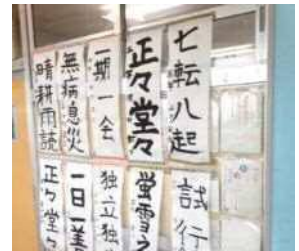 七転八起
正々堂々
一期一会
無病息災
晴耕雨読
試行
蛍雪之
独立独
一日一善
正々堂々